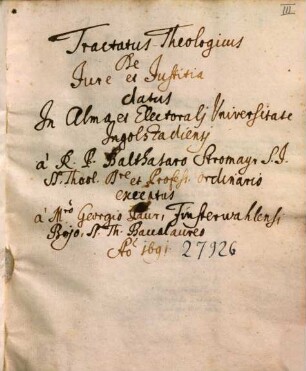 III
Tractatus Theologicus
De
Iure et Iustitia
datus
In Alma et Electorali Universitate
Ingolstadiensi
á R. P. Balthasaro Stromayr S.I.
SS. Theol. Dre et Profess. ordinario
exceptus
á Mro Georgio Laur, Finsterwahlensi
Bojo, SS. Th. Baccalaureo
Ao 1691 27926